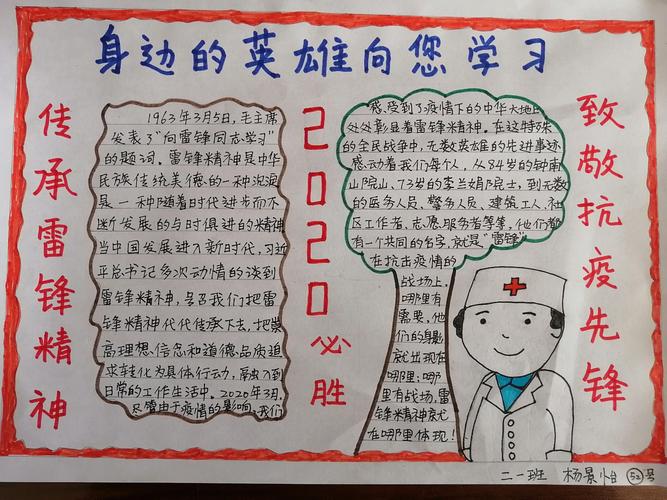 身边的英雄向您学习
传承雷锋精神
1963年3月5日，毛主席
发表了“向雷锋同志学习”
的题词。雷锋精神是中华
民族传统美德的一种沉淀
是一种随着时代进步而不
断发展的与时俱进的精神
当中国发展进入新时代，习近
平总书记多次动情的谈到
雷锋精神，号召我们把雷
锋精神代代传承下去，把崇
高理想信念和道德品质追
求转化为具体行动，融入到
日常的工作生活中。2020年3月，
尽管由于疫情的影响，我们
2020必胜
感受到了疫情下的中华大地
处处彰显着雷锋精神。在这特殊
的全民战争中，无数英雄的先进事迹
感动着我们每个人，从84岁的钟南
山院山、73岁的李兰娟院士，到无数
的医务人员、警务人员、建筑工人、社
区工作者、志愿服务者等等，他们都
有一个共同的名字，就是“雷锋”
在抗击疫情的
战场上，
哪里有
需要，他
们的身影
就出现在
哪里；哪
里有战场，雷
锋精神就
在哪里体现！
致敬抗疫先锋
二一班 杨景怡 52号